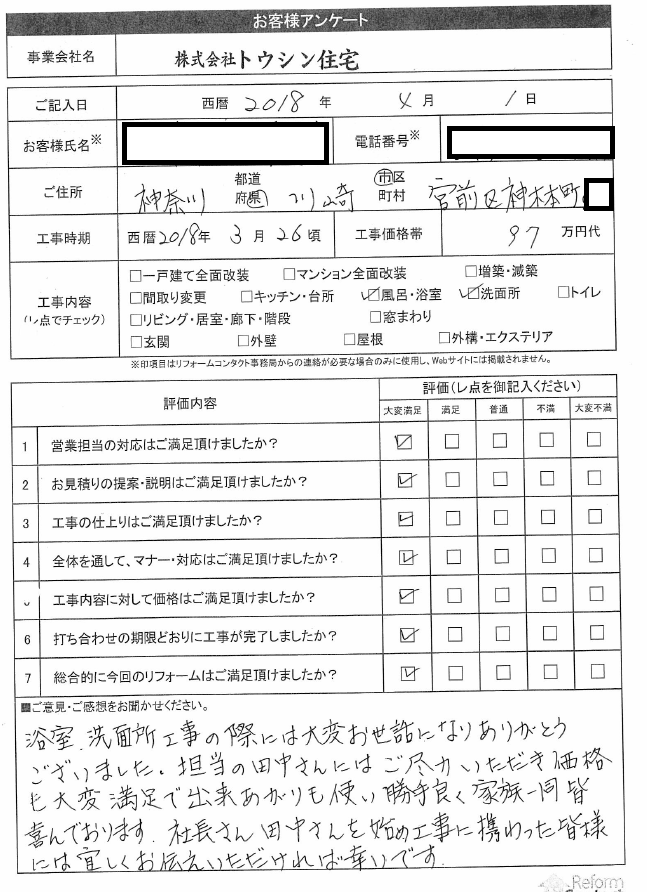 お客様アンケート
事業会社名 株式会社トウシン住宅
ご記入日 西暦 2018 年 4 月 1 日
お客様氏名※ 電話番号※
ご住所 神奈川 都道府県 川崎 市区町村 宮前区神木本町
工事時期 西暦2018年 3 月 26 頃 工事価格帯 97 万円代
工事内容 (レ点でチェック)
□一戸建て全面改装 □マンション全面改装 □増築・減築
□間取り変更 □キッチン・台所 ☑風呂・浴室 ☑洗面所 □トイレ
□リビング・居室・廊下・階段 □窓まわり
□玄関 □外壁 □屋根 □外構・エクステリア
※印項目はリフォームコンタクト事務局からの連絡が必要な場合のみに使用し、Webサイトには掲載されません。
評価内容 評価(レ点を御記入ください)
大変満足 満足 普通 不満 大変不満
1 営業担当の対応はご満足頂けましたか? ☑ □ □ □ □
2 お見積りの提案・説明はご満足頂けましたか? ☑ □ □ □ □
3 工事の仕上りはご満足頂けましたか? ☑ □ □ □ □
4 全体を通して、マナー・対応はご満足頂けましたか? ☑ □ □ □ □
工事内容に対して価格はご満足頂けましたか? ☑ □ □ □ □
6 打ち合わせの期限どおりに工事が完了しましたか? ☑ □ □ □ □
7 総合的に今回のリフォームはご満足頂けましたか? ☑ □ □ □ □
■ご意見・ご感想をお聞かせください。
浴室、洗面所工事の際には大変お世話になりありがとう
ございました。担当の田中さんにはご尽力いただき価格
も大変満足で出来あがりも使い勝手良く家族一同皆
喜んでおります。社長さん田中さんを始め工事に携わった皆様
には宜しくお伝えいただければ幸いです。
Reform